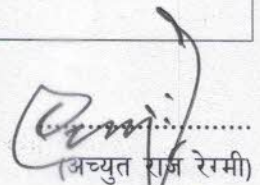 (अच्युत राज रेग्मी)